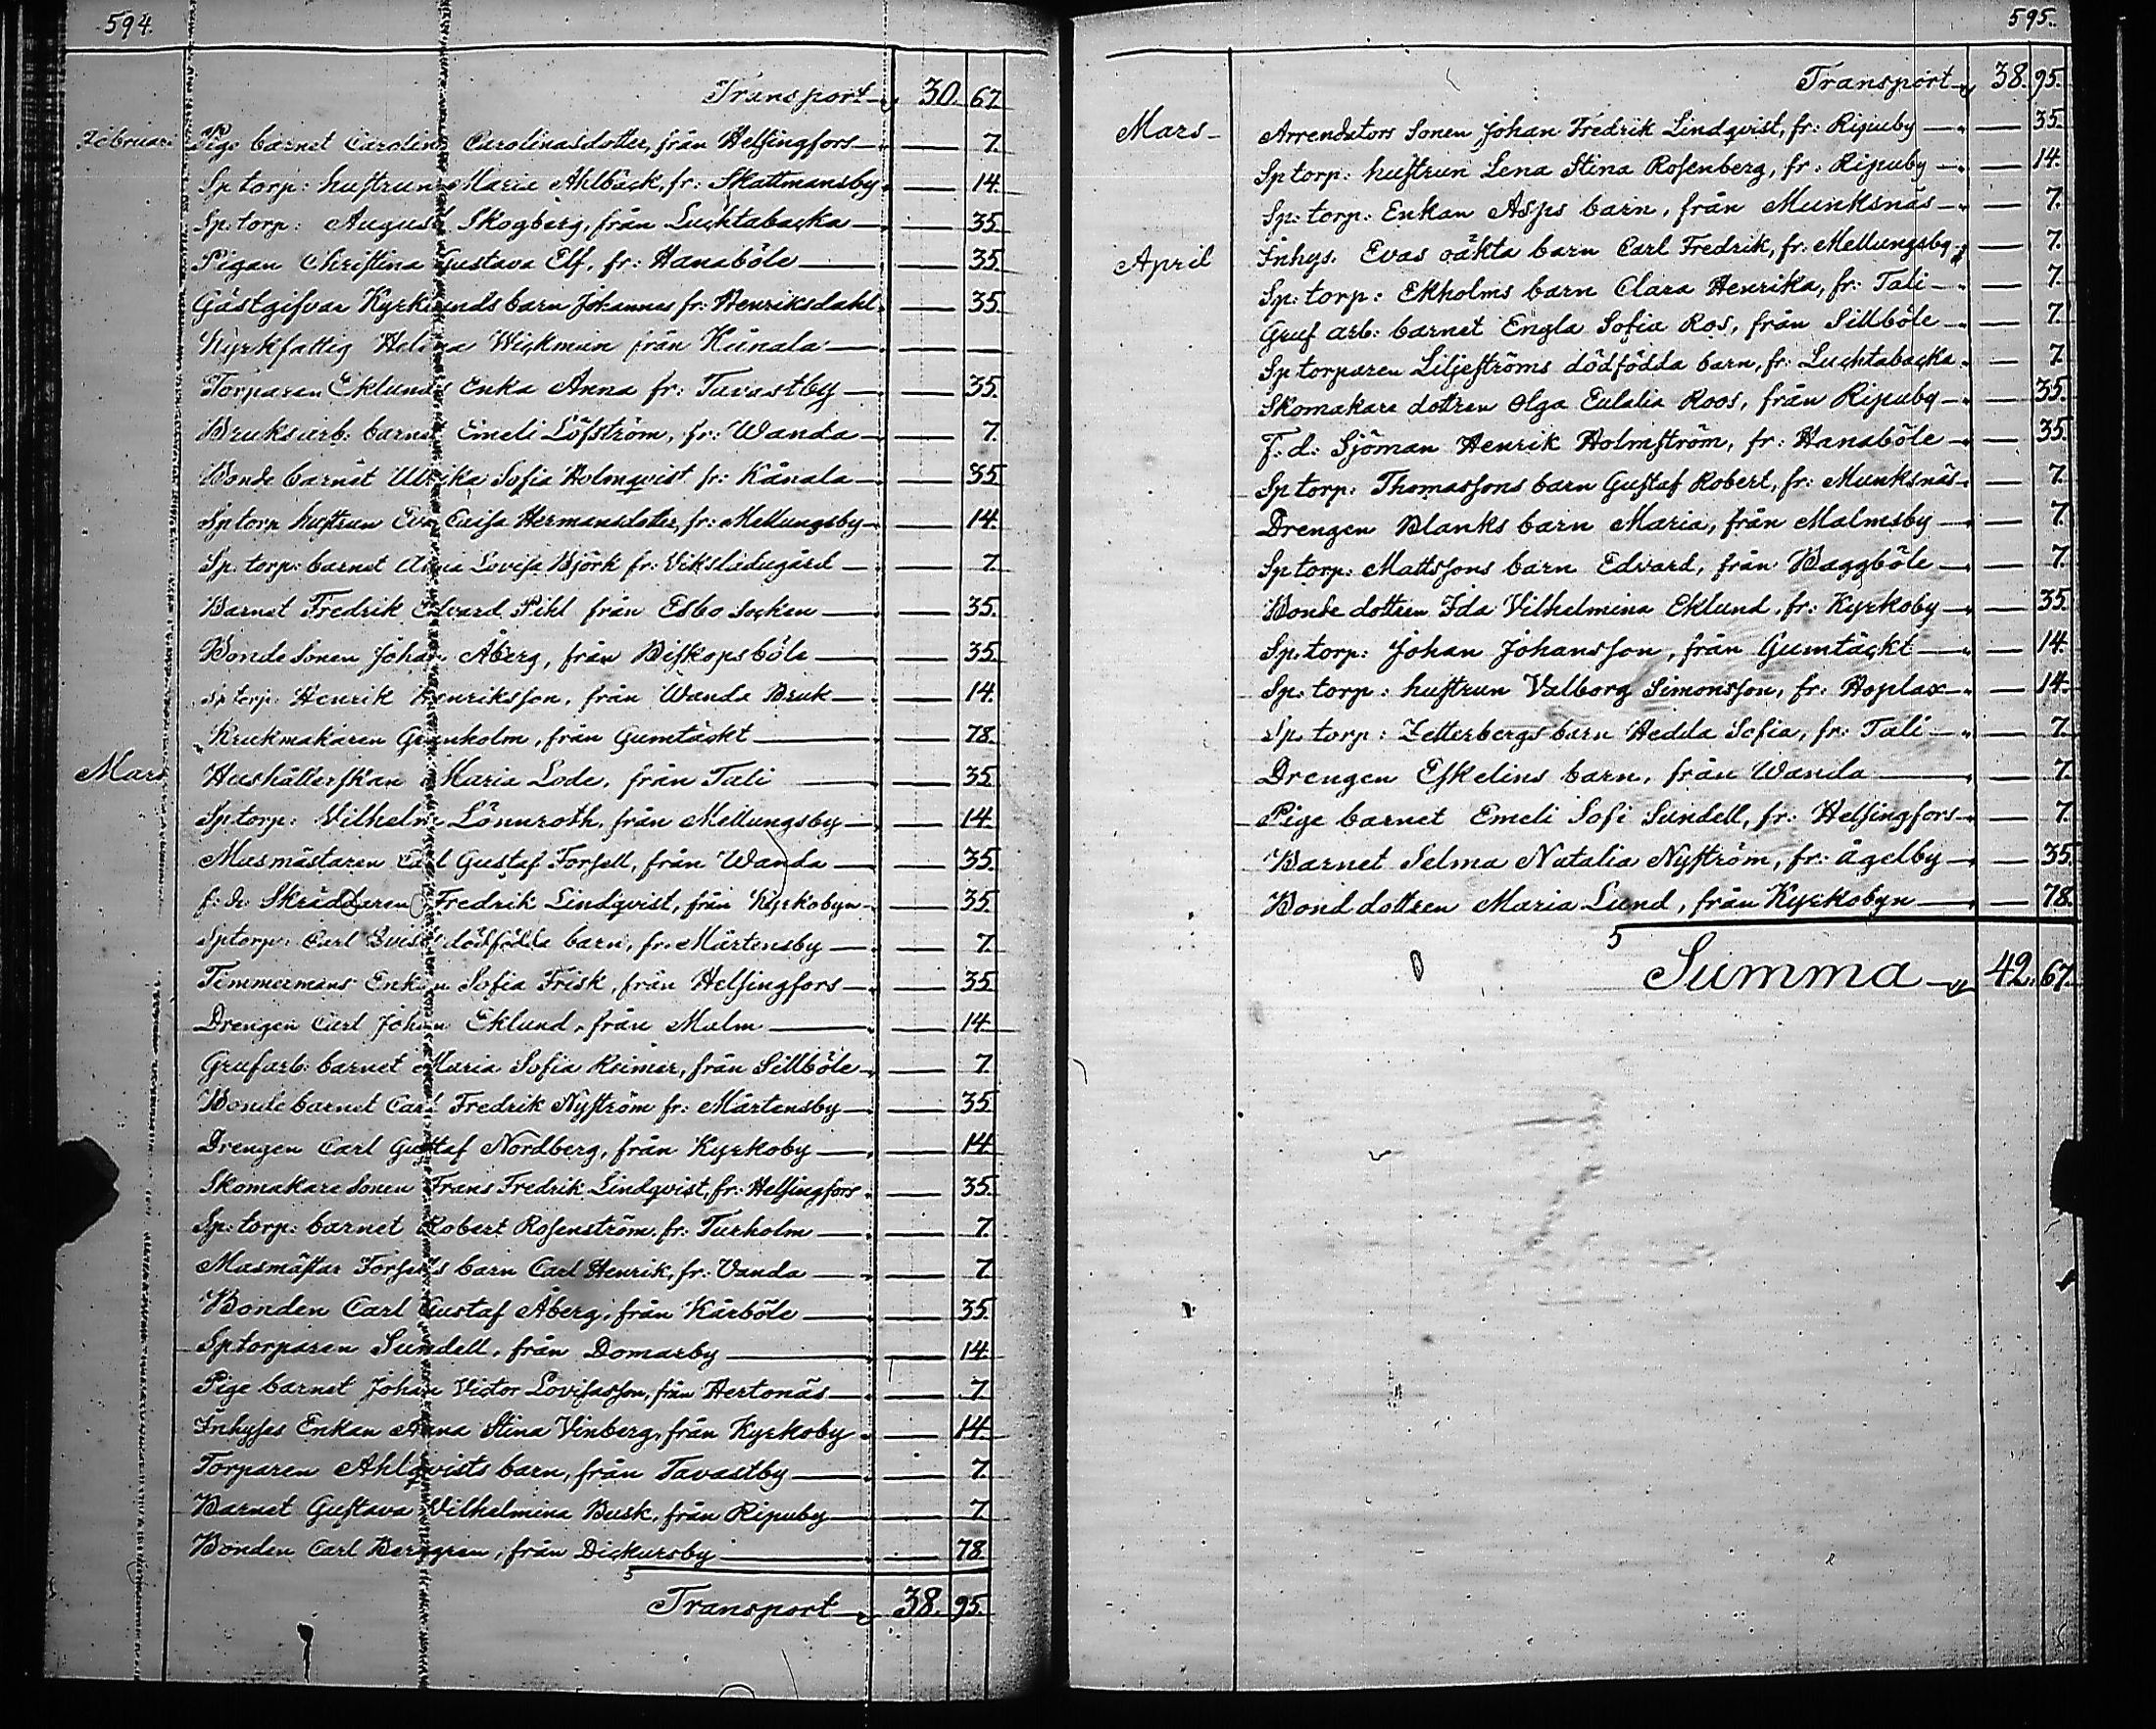 594.
Transport 30. 67.
Februari Pige barnet Carolina Carolinasdotter, från Helsingfors — 7.
Sp torp: hustrun Maria Ahlbäck, fr: Skattmansby — 14.
Sp: torp: August Skogberg, från Luchtabacka — 35.
Pigan Christina Gustava Elf, fr: Hanaböle — 35.
Gästgifvar Kyrklunds barn Johannes fr: Henriksdahl — 35.
Kyrkfattig Helena Wickman från Kånala — —
Torparen Eklunds Enka Anna fr: Tavastby — 35.
Bruksarb: barnet Emeli Löfström, fr: Wanda — 7.
Bonde barnet Ulrika Sofia Holmqvist fr: Kånala — 35
Sp torp hustrun Eva Caisa Hermansdotter, fr: Mellungsby — 14.
Sp. torp: barnet Anna Lovisa Björk fr: Viksladugård — 7
Barnet Fredrik Edvard Pihl från Esbo Socken — 35.
Bonde Sonen Johan Åberg, från Biskopsböle — 35.
Sp torp: Henrik Henriksson, från Wanda Bruk — 14.
Krukmakaren Granholm, från Gumtäckt — 78.
Mars Hushållerskan Maria Lode, från Tali — 35.
Sp torp: Vilhelm Lönnroth, från Mellungsby — 14.
Masmästaren Carl Gustaf Forsell, från Wanda — 35.
f: d: Skräddaren Fredrik Lindqvist, från Kyrkobyn — 35.
Sp torp: Carl dödfödda barn, fr: Mårtensby — 7.
Timmermans Enkan Sofia Frisk, från Helsingfors — 35
Drengen Carl Johan Eklund, från Malm — 14
Grufarb: barnet Maria Sofia Reimer, från Sillböle — 7.
Bonde barnet Carl Fredrik Nyström fr: Mårtensby — 35
Drengen Carl Gustaf Nordberg, från Kyrkoby — 14.
Skomakare Sonen Frans Fredrik Lindqvist, fr: Helsingfors — 35.
Sp: torp: barnet Robert Rosenström, fr: Turholm — 7.
Masmästar Forsells barn Carl Henrik, fr: Vanda — 7.
Bonden Carl Gustaf Åberg, från Kårböle — 35.
Sp torparen Sundell, från Domarby — 14.
Pige barnet Johan Victor Lovisasson, från Hertonäs — 7
Inhyses Enkan Anna Stina Vinberg, från Kyrkoby — 14.
Torparen Ahlqvists barn, från Tavastby — 7.
Barnet Gustava Vilhelmina Busk, från Ripuby — 7
Bonden Carl Berggren, från Dickursby — 78.
Transport 38. 95.
595.
Transport 38. 95.
Mars — Arrendators Sonen Johan Fredrik Lindqvist, fr: Ripuby — 35.
Sp torp: hustrun Lena Stina Rosenberg, fr: Ripuby — 14.
Sp: torp: Enkan Asps barn, från Munksnäs — 7.
April Inhys. Evas oäkta barn Carl Fredrik, fr: Mellungsby — 7.
Sp: torp: Ekholms barn Clara Henrika, fr: Tali — 7.
Gruf arb: barnet Engla Sofia Ros, från Sillböle — 7.
Sp torparen Liljeströms dödfödda barn, fr: Luchtabacka — 7
Skomakare dottren Olga Eulalia Roos, från Ripuby — 35.
F: d: Sjöman Henrik Holmström, fr: Hanaböle — 35.
Sp torp: Thomassons barn Gustaf Robert, fr: Munksnäs — 7.
Drengen Blanks barn Maria, från Malmsby — 7.
Sp torp: Mattssons barn Edvard, från Baggböle — 7.
Bonde dottren Ida Vilhelmina Eklund, fr: Kyrkoby — 35.
Sp. torp: Johan Johansson, från Gumtäckt — 14.
Sp: torp: hustrun Valborg Simonsson, fr: Hoplax — 14.
Sp. torp: Zetterbergs barn Hedda Sofia, fr: Tali — 7.
Drengen Eskelins barn, från Wanda — 7.
Pige barnet Emeli Sofi Sundell, fr: Helsingfors — 7.
Barnet Selma Natalia Nyström, fr: Ågelby — 35.
Bond dottren Maria Lund, från Kyrkobyn — 78.
Summa 42. 67.